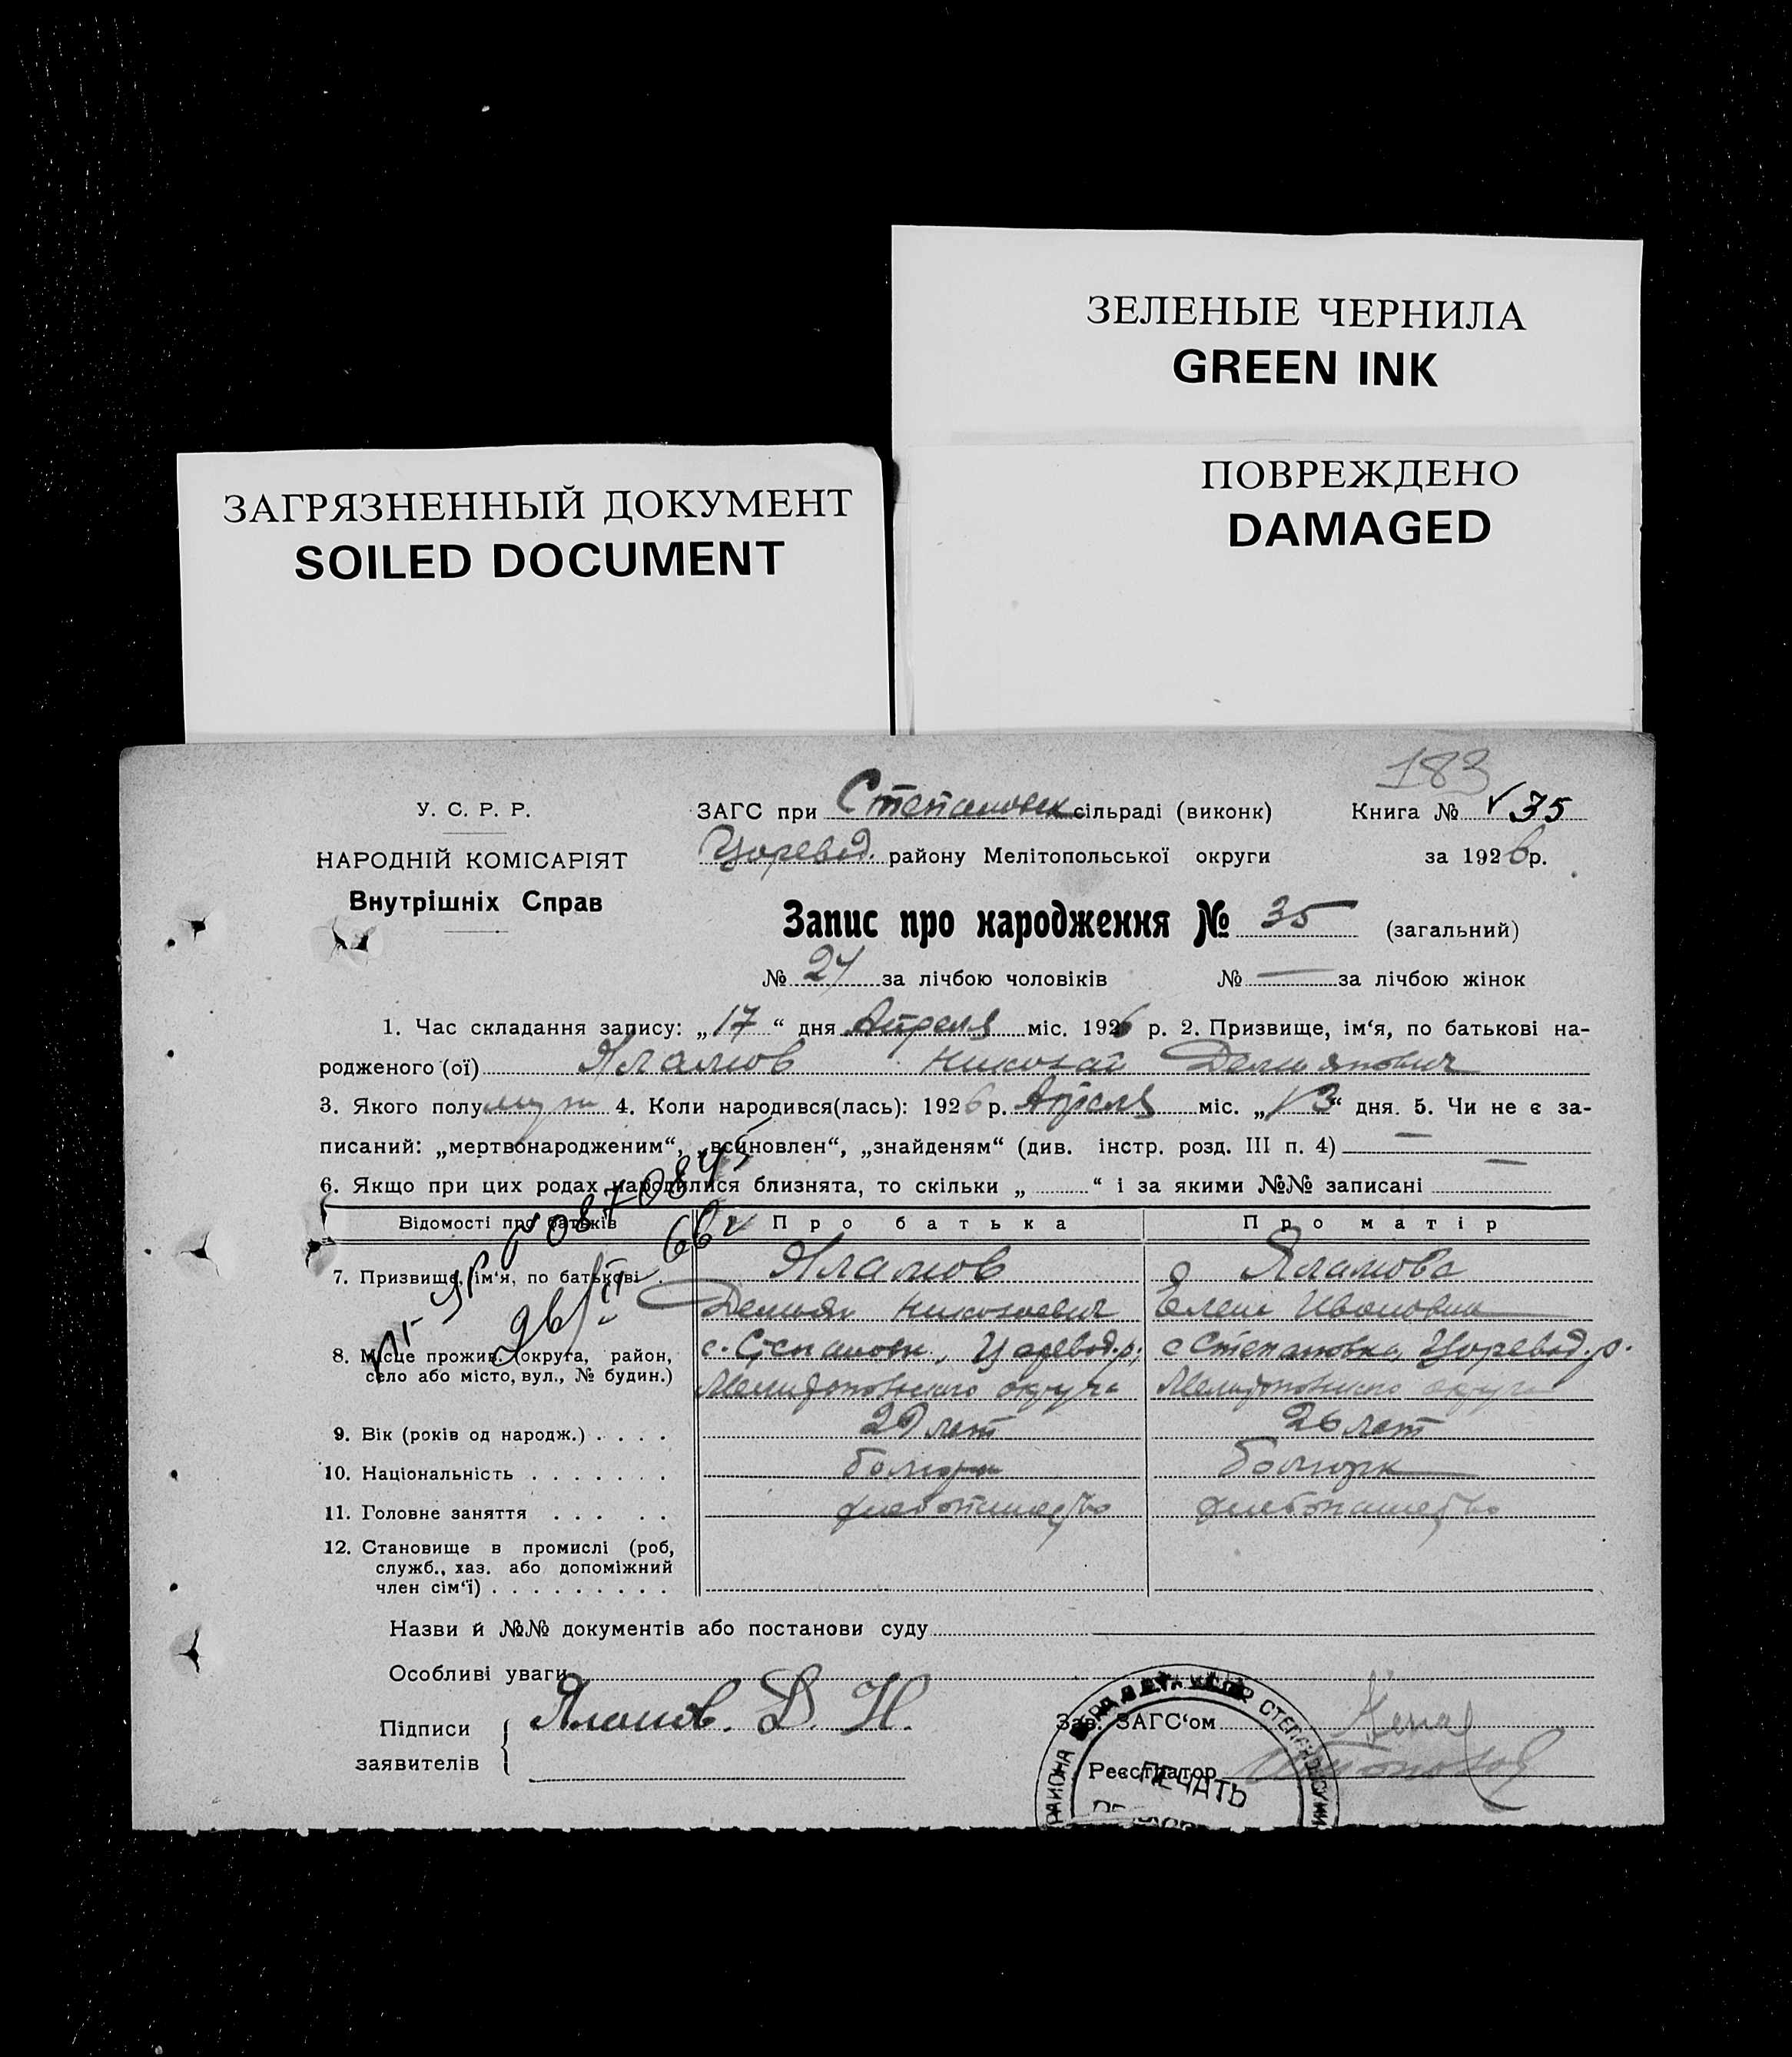 ЗЕЛЕНЫЕ ЧЕРНИЛА
GREEN INK
ЗАГРЯЗНЕННЫЙ ДОКУМЕНТ
SOILED DOCUMENT
ПОВРЕЖДЕНО
DAMAGED
183
У. С. Р. Р.
НАРОДНІЙ КОМІСАРІЯТ
Внутрішніх Справ
ЗАГС при Степановск сільраді (виконк)
Книга № 35
Царевод. району Мелітопольської округи
за 1926 р.
Запис про народження № 35 (загальний)
№ 24 за лічбою чоловіків № — за лічбою жінок
1. Час складання запису: „17“ дня Апреля міс. 1926 р. 2. Призвище, ім‘я, по батькові на-
родженого (ої) Яламов Николай Демьянович
3. Якого полу муж 4. Коли народився(лась): 1926 р. Апреля міс. „13“ дня. 5. Чи не є за-
писаний: „мертвонародженим“, „всиновлен“, „знайденям“ (див. інстр. розд. III п. 4) —
6. Якщо при цих родах народилися близнята, то скільки „ “ і за якими №№ записані —
Відомості про батьків Про батька Про матір
7. Призвище, ім‘я, по батькові Яламов Яламова
Демьян Николаевич Елена Ивановна
8. Місце прожив. (округа, район, село або місто, вул., № будин.)
с. Степановк, Царевод. р. с Степановка, Царевод. р.
Мелитопольского округа Мелитопольского округа
9. Вік (років од народж.) . . . . 29 лет 26 лет
10. Національність . . . . . . . болгарин болгарк
11. Головне заняття . . . . . хлебопашество хлебопашество
12. Становище в промислі (роб,
служб., хаз. або допоміжний
член сім‘ї) . . . . . . . . .
Назви й №№ документів або постанови суду
Особливі уваги
Підписи
заявителів
Яламов. Д. Н.
Зав. ЗАГС‘ом
Реєстратор
РАЙОНА СТЕПАНОВСКИЙ
ПЕЧАТЬ